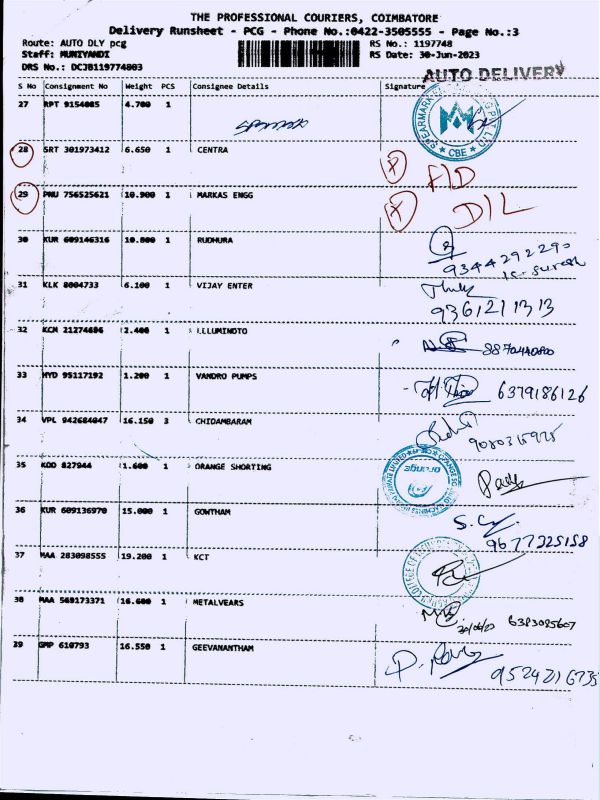 THE PROFESSIONAL COURIERS, COIMBATORE
Delivery Runsheet - PCG - Phone No.:0422-3505555 - Page No.:3
Route: AUTO DLY pcg RS No.: 1197748
Staff: MUNIYANDI RS Date: 30-Jun-2023
DRS No.: DCJB119774803
AUTO DELIVERY
S No Consignment No Weight PCS Consignee Details Signature
27 RPT 9154085 4.700 1
CBE
28 SRT 301973412 6.650 1 CENTRA
29 PNU 756525621 10.900 1 MARKAS ENGG
D/L
30 KUR 609146316 10.800 1 RUDHURA
9344292290
K. Suresh
31 KLK 8004733 6.100 1 VIJAY ENTER
9361211313
32 KCM 21274606 2.400 1 LLLUMINOTO
8870440800
33 HYD 95117192 1.200 1 VANDRO PUMPS
6379186126
34 VPL 942684047 16.150 3 CHIDAMBARAM
35 KOD 827944 1.600 1 ORANGE SHORTING
36 KUR 609136970 15.000 1 GOWTHAM
9677325158
37 MAA 283098555 19.200 1 KCT
38 MAA 569173371 16.600 1 METALVEARS
30/06/23 6383085607
39 GMP 610793 16.550 1 GEEVANANTHAM